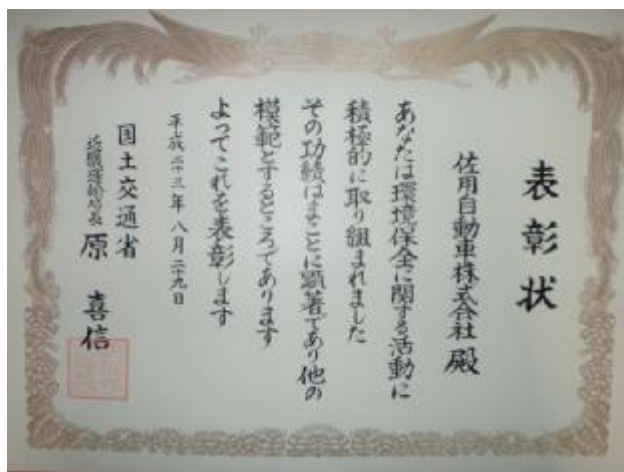 表彰状
佐用自動車株式会社 殿
あなたは環境保全に関する活動に
積極的に取り組まれました
その功績はまことに顕著であり他の
模範とするところであります
よってこれを表彰します
平成二十三年八月二十九日
国土交通省
近畿運輸局長 原 喜信